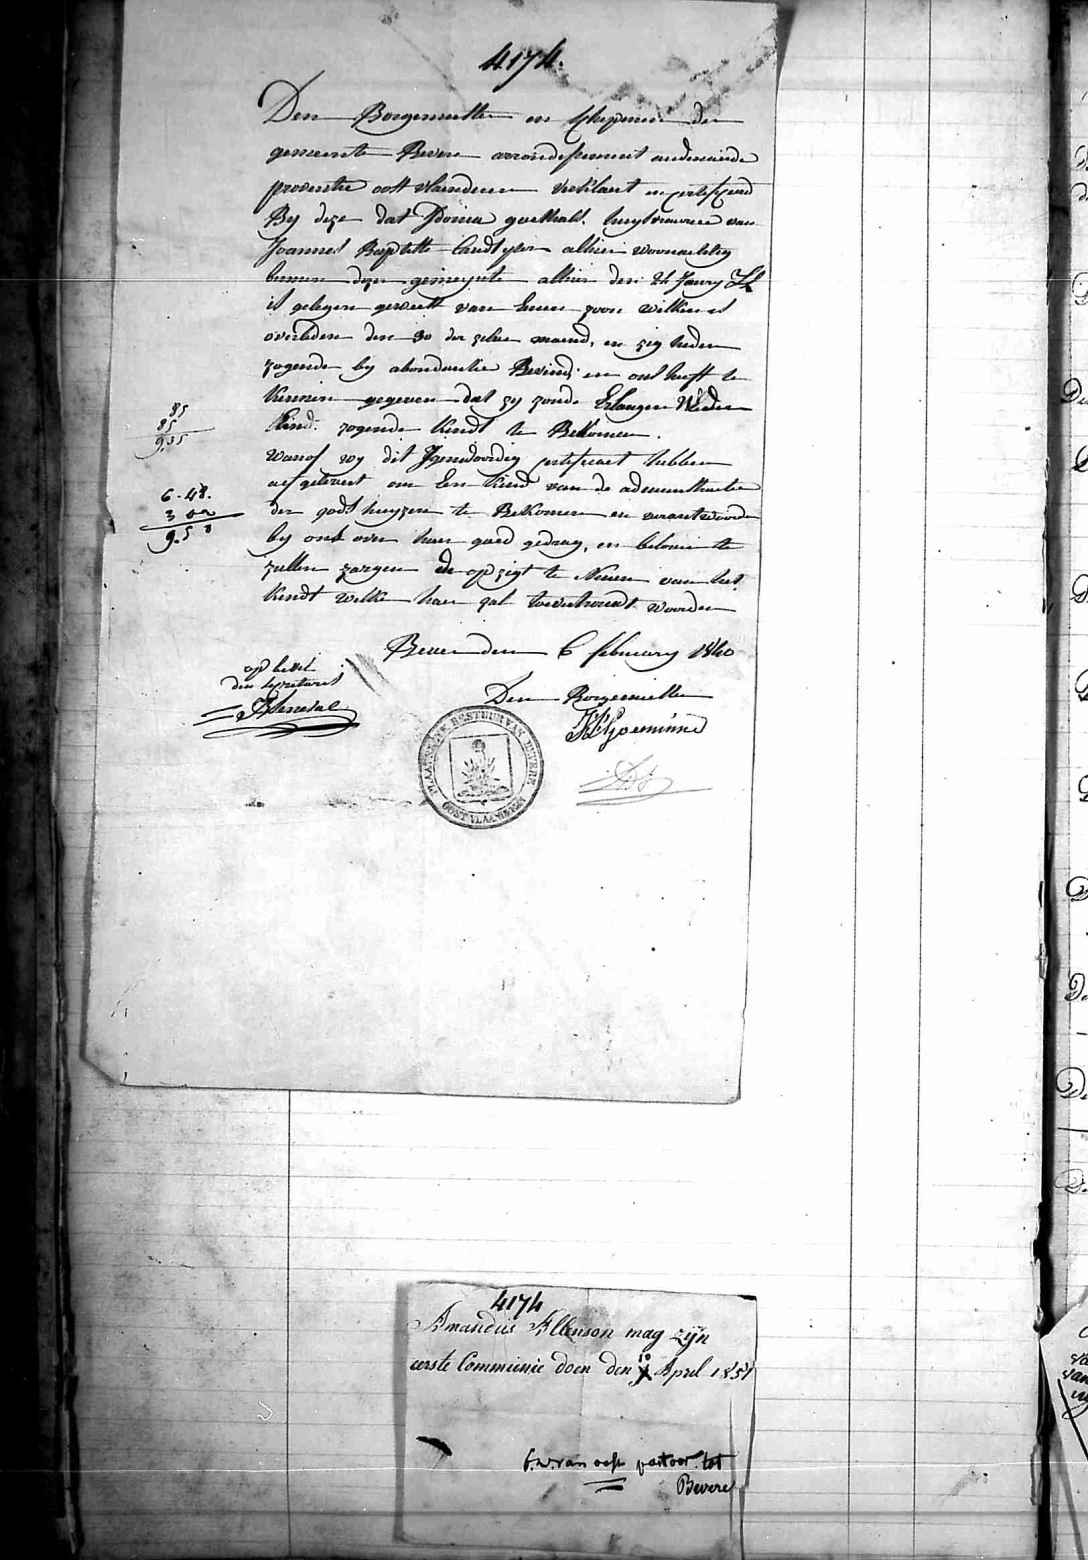 4174.
Den Borgemeester en Schepenen der
gemeente Bevere arrondissement audenaerde
provintie oost vlaenderen verklaert en certificeerd
By deze dat Idonia goethals. huysvrouwe van
Joannes Baptiste alhier woonachtig
binnen deze gemeynte alhier den 24 January
is gelegen geweest van eenen zoon welken is
overleden den 30 der zelve maend, en zig heden
zogende by abondantie Bevind; en ons heeft te
kennen gegeven dat zy zoude Erlangen
kind. zogende kindt te Bekomen.
wanof wy dit Jegenwoordig certificaet hebben
afgelevert om Een kind van de administratie
der gods huyzen te Bekomen en verantwoorde
by ons over haer goed gedrag, en belooven te
zullen zorgen en opzigt te Nemen van het
kindt welke haer zal toevertrouwt woorden
Bever den 6 february 1840
85
85
9.35
6-48.
3
9.58
op bevel
den secretaris
Den Borgemeester
Goeminne
PLAATSELYK BESTUUR VAN BEVERE
OOST VLAANDEREN
4174
Amandus Allenson mag zijn
eerste Communie doen den 10 April 1851
pastoor tot
Bevere